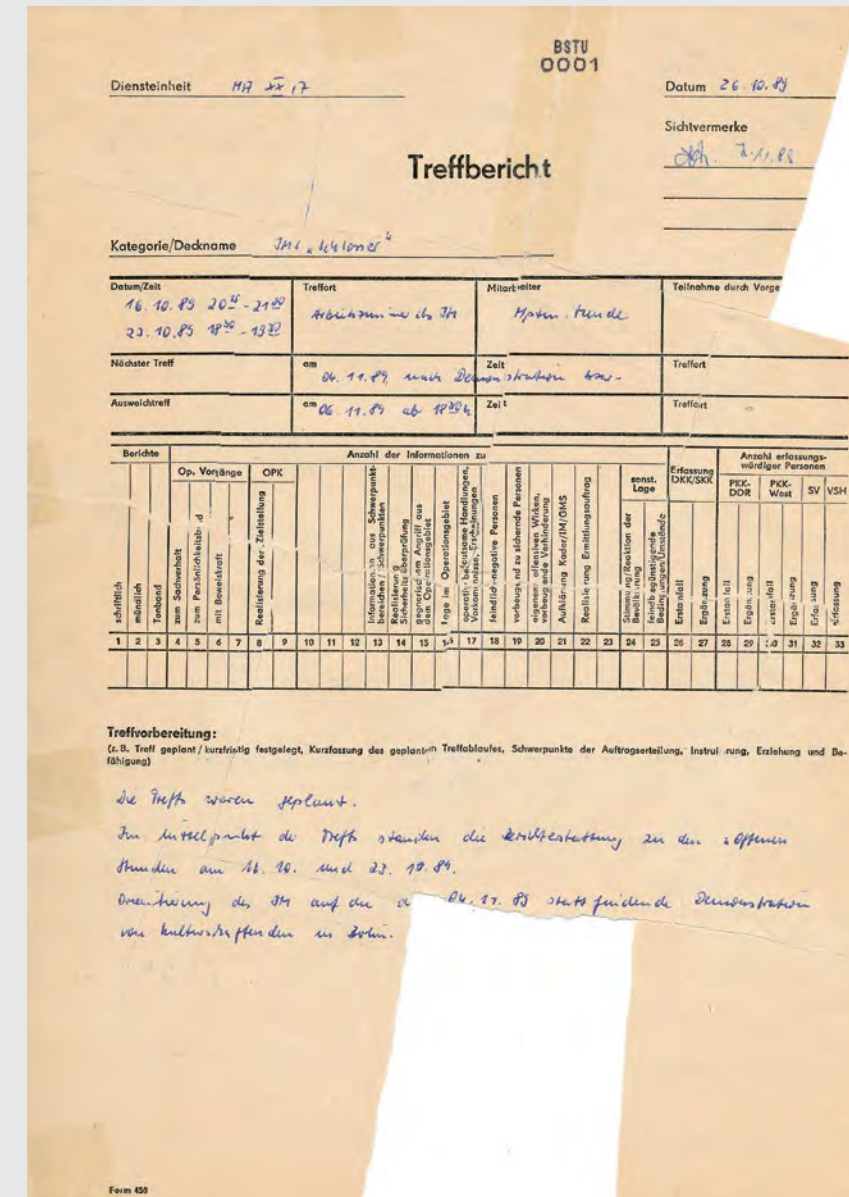 BSTU
0001
Diensteinheit HA XX / 7
Datum 26.10.89
Sichtvermerke
Treffbericht
Kategorie/Deckname
Datum/Zeit Treffort Mitarbeiter Teilnahme durch Vorge
16.10.89 20 - 21 Arbeitszimmer des IM Hptm.
23.10.89 18 - 19
Nächster Treff am 04.11.89 nach Demonstration Zeit Treffort
Ausweichtreff am 06.11.89 ab 18 h Zeit Treffort
Berichte Anzahl der Informationen zu
Op. Vorgänge OPK sonst. Lage Erfassung DKK/SKK Anzahl erfassungswürdiger Personen
PKK-DDR PKK-West SV VSH
schriftlich
mündlich
Tonband
zum Sachverhalt
zum Persönlichkeitsb d
mit Beweiskraft
Realisierung der Zielstellung
Informationen aus Schwerpunkt-
bereichen / Schwerpunkten
Realisierung
Sicherheitsüberprüfung
gegnerischem Angriff aus
dem Operationsgebiet
Lage im Operationsgebiet
operativ bedeutsame Handlungen,
Vorkommnisse, Erscheinungen
feindlich-negative Personen
vorbeugend zu sichernde Personen
eigenem offensiven Wirken,
vorbeugende Verhinderung
Aufklärung Kader/IM/GMS
Realisierung Ermittlungsauftrag
Stimmung/Reaktion der
Bevölkerung
feindbegünstigende
Bedingungen/Umstände
Erstanfall
Ergänzung
Erstanfall
Ergänzung
Erstanfall
Ergänzung
Erfassung
Erfassung
1 2 3 4 5 6 7 8 9 10 11 12 13 14 15 16 17 18 19 20 21 22 23 24 25 26 27 28 29 30 31 32 33
Treffvorbereitung:
(z. B. Treff geplant / kurzfristig festgelegt, Kurzfassung des geplanten Treffablaufes, Schwerpunkte der Auftragserteilung, Instruierung, Erziehung und Be-
fähigung)
Die Treffs waren geplant.
Im Mittelpunkt der Treffs standen die Berichterstattung zu den "Offenen
Stunden am 16.10. und 23.10.89.
Orientierung des IM auf die a 04.11.89 stattfindende Demonstration
von Kulturschaffenden in Berlin.
Form 450